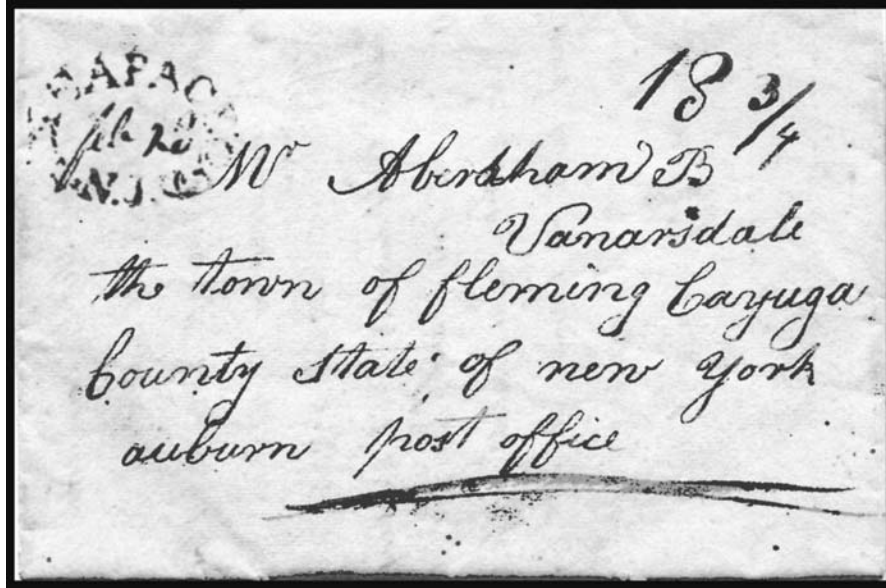 feb 28
N.J.
18 3/4
Mr Aberkham B
Vanarsdale
the town of fleming Cayuga
County state of new york
auburn post office